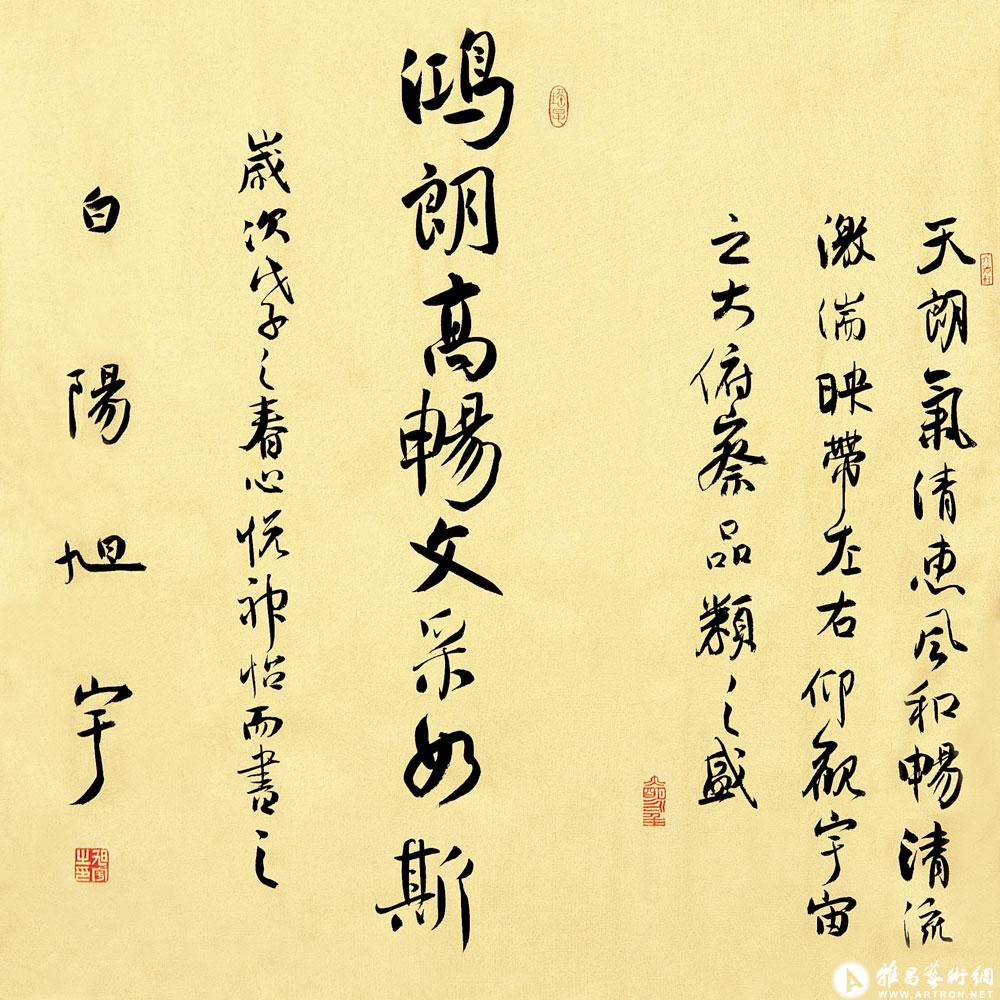 天朗氣清惠風和暢清流
激湍映帶左右仰觀宇宙
之大俯察品類之盛
鴻朗高暢文采如斯
歲次戊子之春心悦神怡而書之
白陽旭宇
旭宇之印
雅昌藝術網
WWW.ARTRON.NET